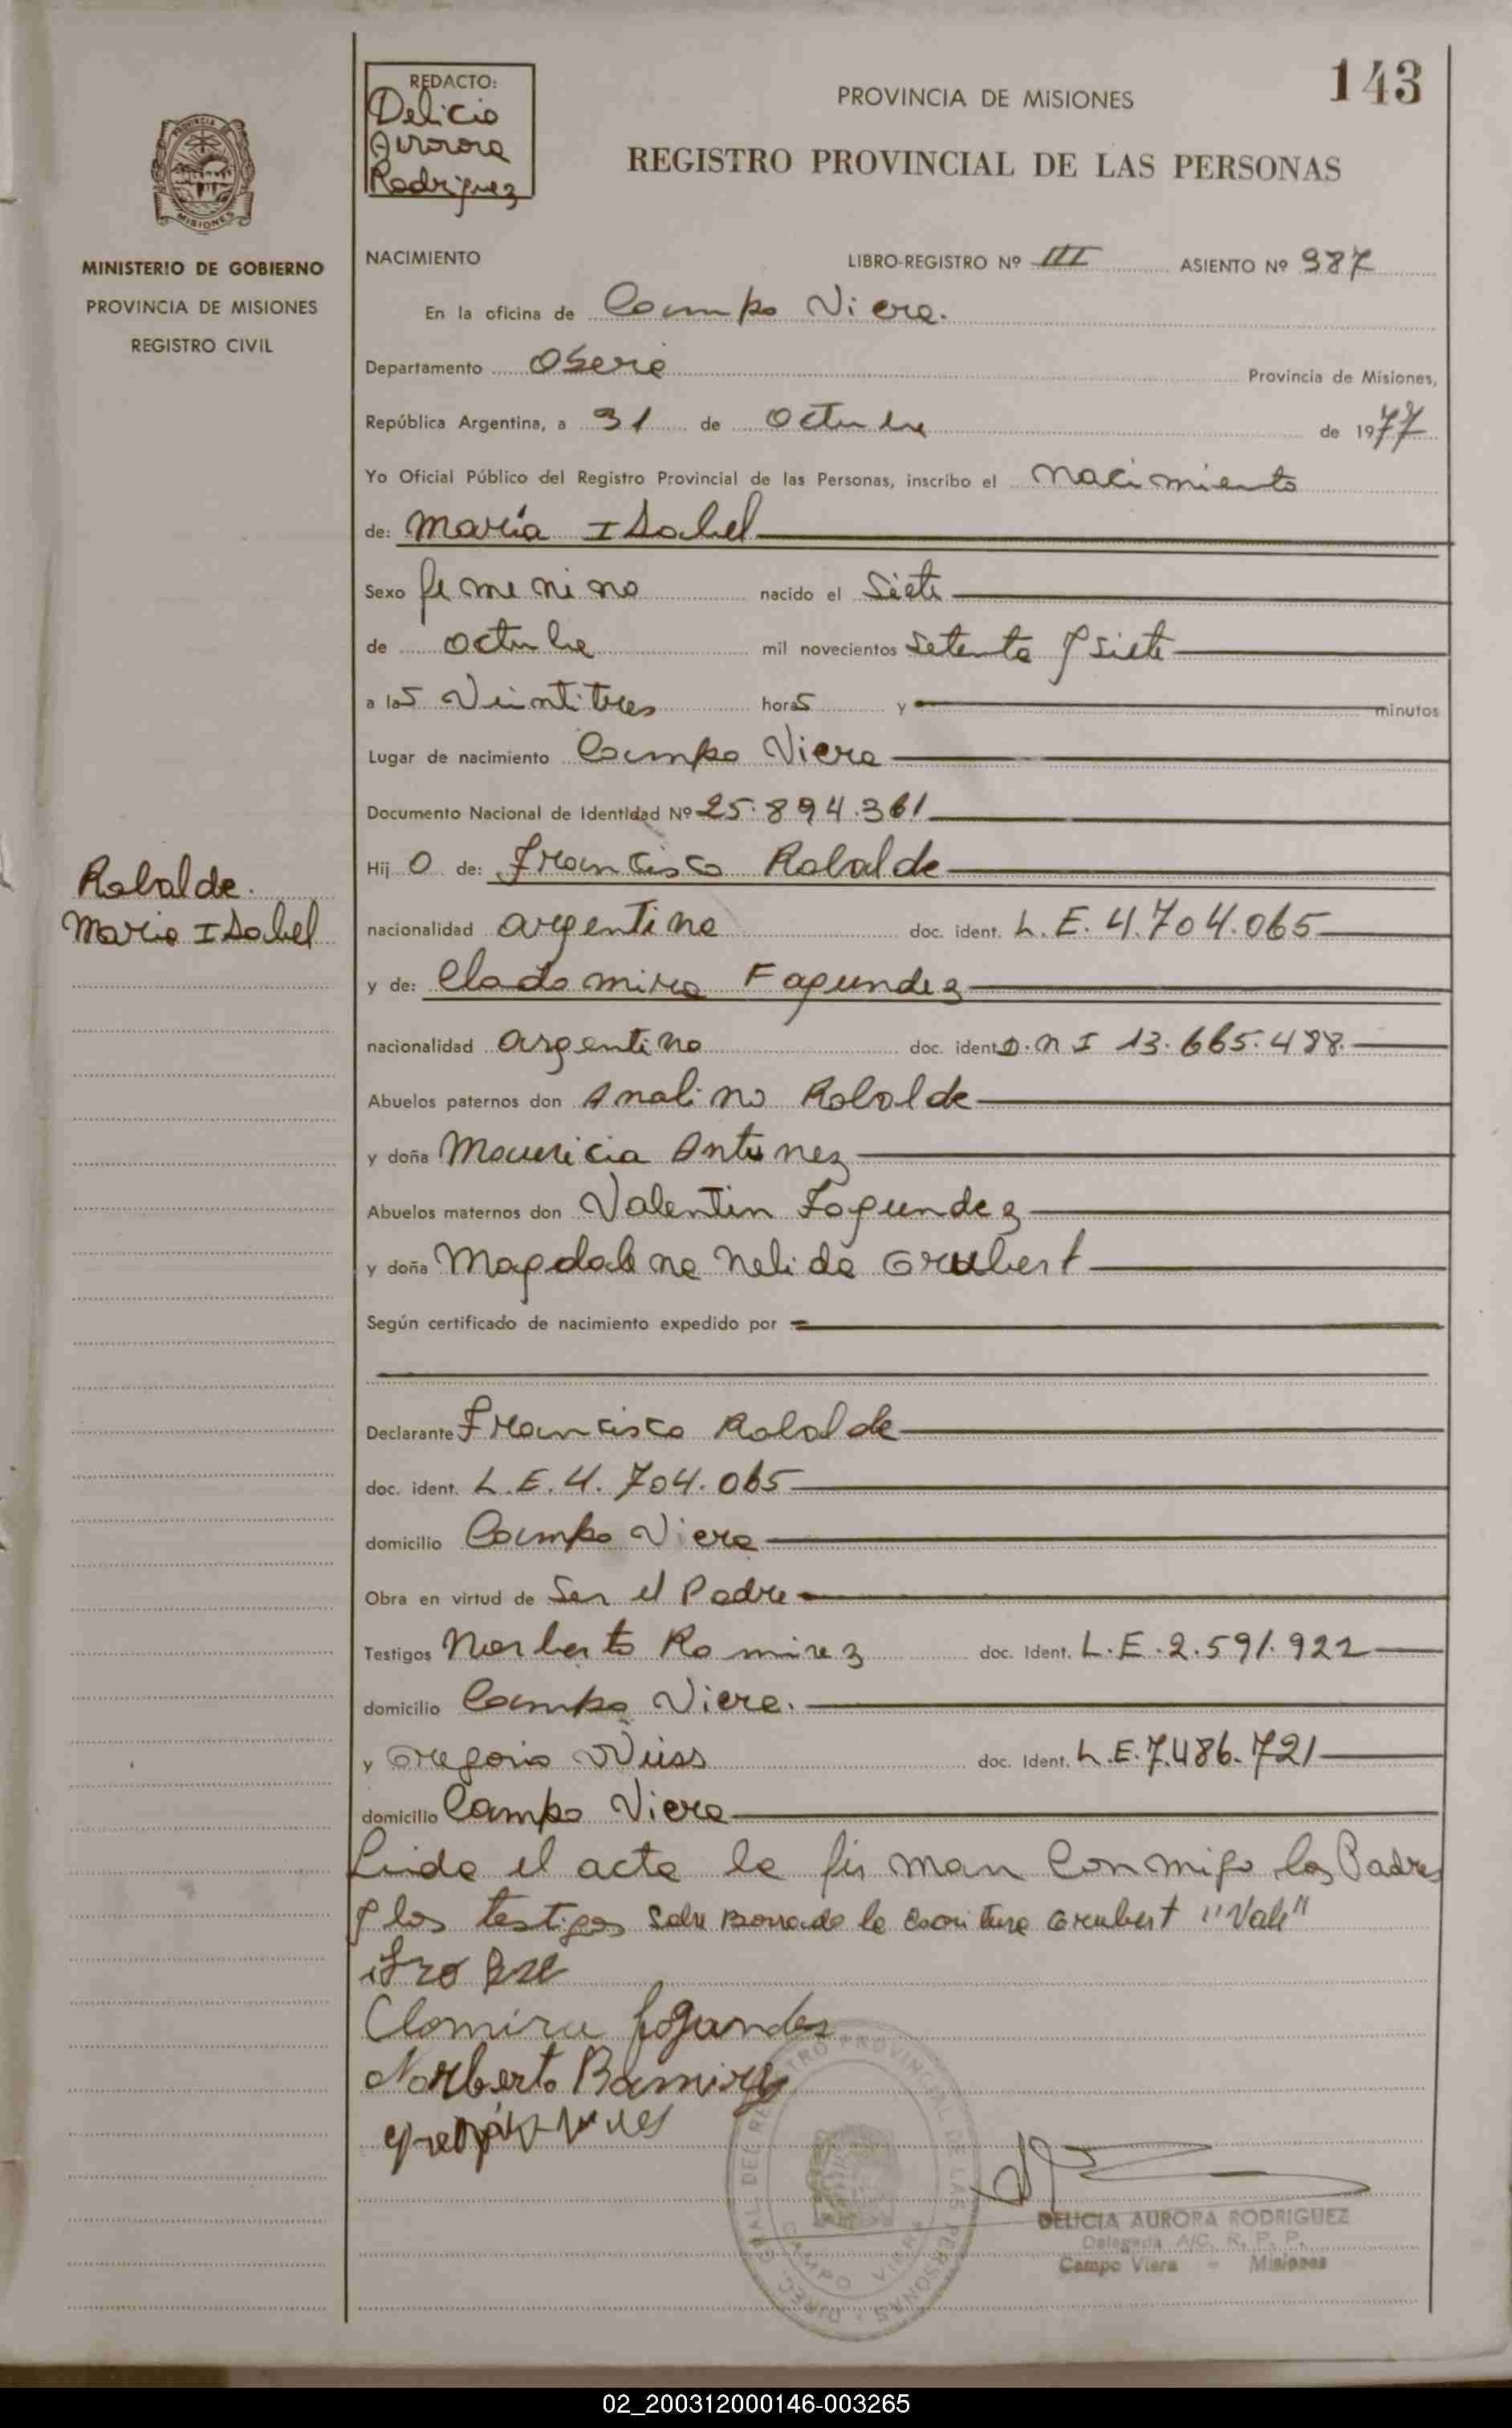 143
REDACTO:
Delicia
Aurora
Rodriguez
PROVINCIA DE MISIONES
REGISTRO PROVINCIAL DE LAS PERSONAS
PROVINCIA
MISIONES
MINISTERIO DE GOBIERNO
PROVINCIA DE MISIONES
REGISTRO CIVIL
NACIMIENTO LIBRO-REGISTRO Nº III ASIENTO Nº 987
En la oficina de Campo Viera.
Departamento Oberá Provincia de Misiones,
República Argentina, a 31 de Octubre de 1977
Yo Oficial Público del Registro Provincial de las Personas, inscribo el nacimiento
de: María Isabel
Sexo femenino nacido el Siete
de octubre mil novecientos setenta y siete
a las Veintitres horas y minutos
Lugar de nacimiento Campo Viera
Documento Nacional de Identidad Nº 25.894.361
Hijo de: Francisco Rabalde
Rabalde.
Maria Isabel
nacionalidad argentina doc. ident. L.E. 4.704.065
y de: Clodomira Fagundez
nacionalidad argentina doc. ident D.N I 13.665.488
Abuelos paternos don Analino Rabalde
y doña Mauricia Antunez
Abuelos maternos don Valentin Fagundez
y doña Magdalena Nelida Grubert
Según certificado de nacimiento expedido por
Declarante Francisco Rabalde
doc. ident. L.E. 4.704.065
domicilio Campo Viera
Obra en virtud de Ser el Padre
Testigos Norberto Ramirez doc. Ident. L.E.2.591.922
domicilio Campo Viera.
y Gregorio Weiss doc. Ident. L.E.7.486.721
domicilio Campo Viera
Leida el acta la firman Conmigo los Padres
y los testigos Salv Borrado la Escritura Grubert "Vale"
Clomira fogandes
Norberto Ramirez
DIREC. GRAL. DEL REGISTRO PROVINCIAL DE LAS PERSONAS
CAMPO VIERA
DELICIA AURORA RODRIGUEZ
Delegada A/C. R. P. P.
Campo Viera - Misiones
02_200312000146-003265